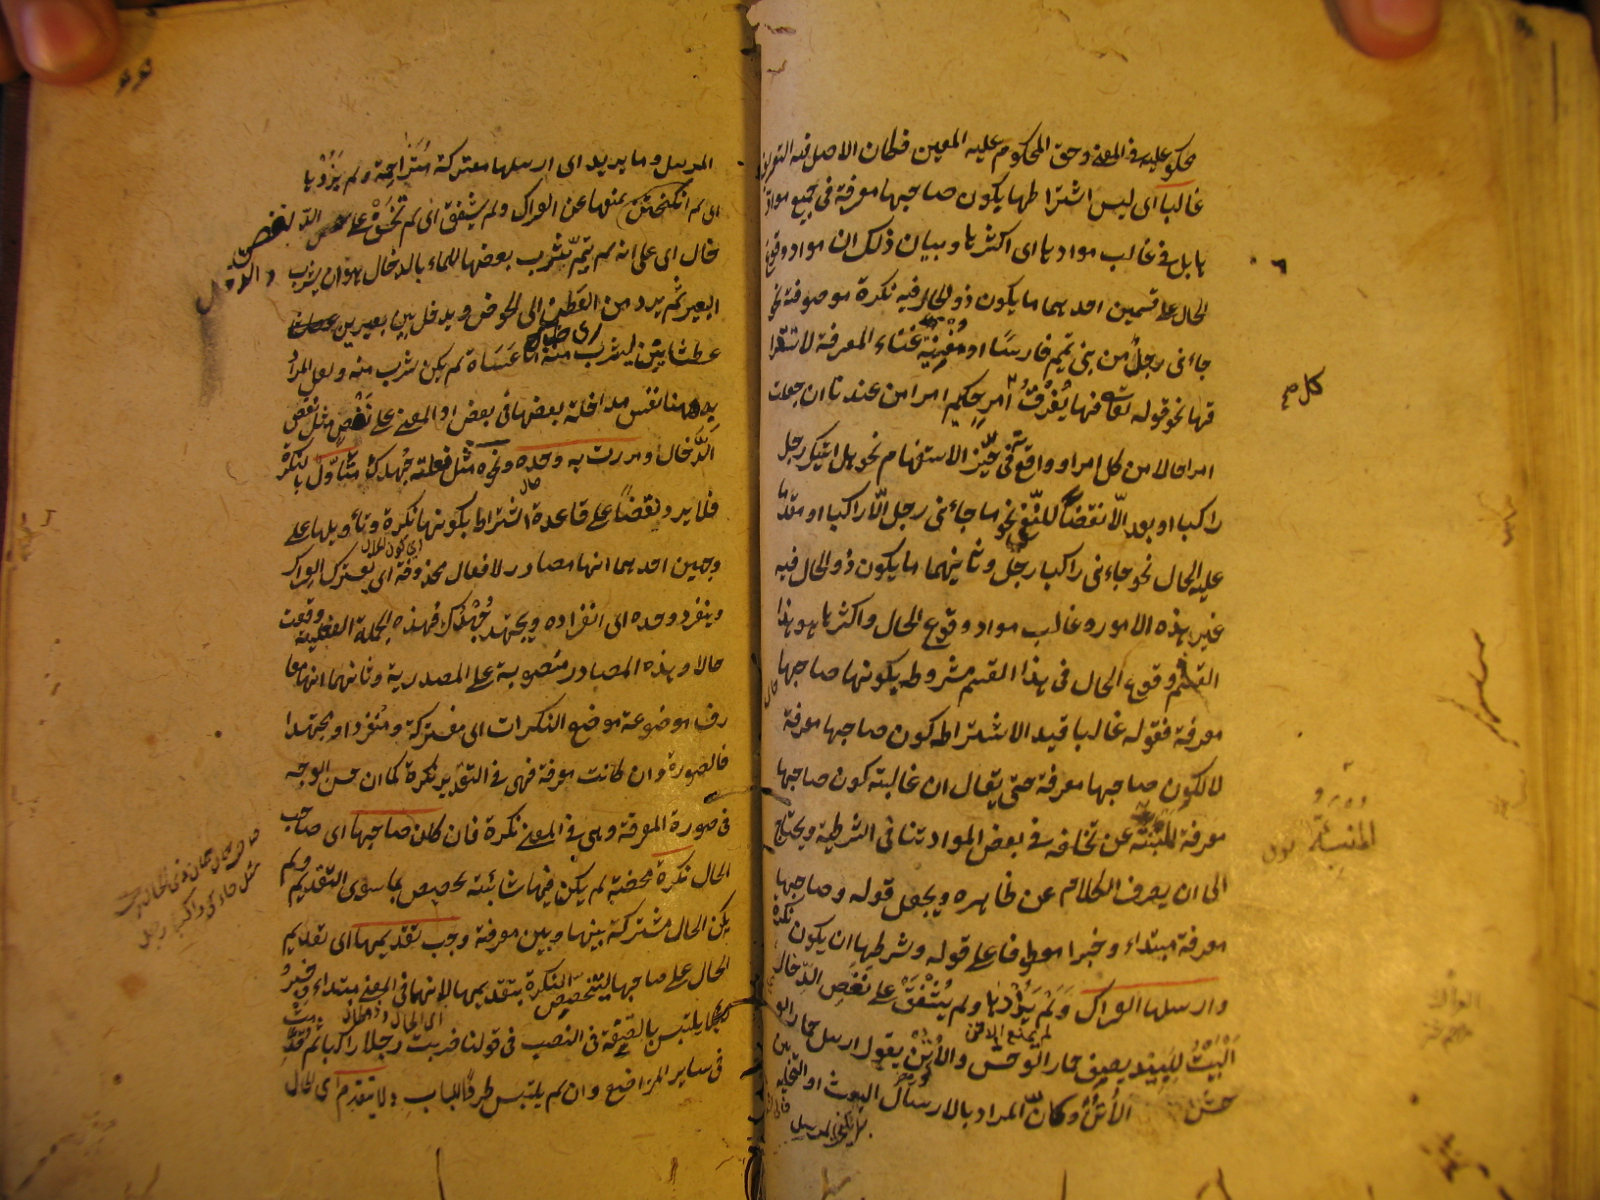 محكوم عليه في المعنى وحق المحكوم عليه التعريف فكان الاصل فيه التعريف
غالبا اى ليس اشتراطها بكون صاحبها معرفة في جميع موادها
بل في غالب موادها اى اكثرها وبيان ذلك ان مواد وقوع
الحال على قسمين احدهما ما يكون ذو الحال فيه نكرة موصوفة نحو
جاءنى رجل من بنى تميم فارسا او مغنية غناء المعرفة لاستغرا
قها نحو قوله تعالى فيها يفرق كل امر حكيم امرا من عندنا ان جعلت
امرا حالا من كل امر او واقعة في حيز الاستفهام نحو هل اتيك رجل
راكبا او بعد الا نقضا للنفى نحو ما جاءنى رجل الا راكبا او مقدما
عليه الحال نحو جاءنى راكبا رجل وثانيهما ما يكون ذو الحال فيه
غير هذه الامور وغالب مواد وقوع الحال واكثرها هو هذا
القسم وقوع الحال في هذا القسم مشروط بكونها صاحبها
معرفة فقوله غالبا قيد الاشتراط كون صاحبها معرفة
لا لكون صاحبها معرفة حتى يقال ان غالبية كون صاحبها
معرفة المنبئة عن تخلفه في بعض المواد تنافى الشرطية ويحتاج
الى ان يصرف الكلام عن ظاهره ويجعل قوله وصاحبها
معرفة مبتداء وخبرا معطوفا على قوله وشرطها ان يكون نكرة
وارسلها العراك ولم يذدها ولم يشفق على نغص الدخال
البيت للبيد يصف حمار الوحش والاتن يقول ارسل حمار الو
حش الاتن وكان المراد بالارسال البعث او التخلية بين
المرسل وما يريد اى ارسلها معتركة متزاحمة ولم يذدها
اى لم يمنعها عن العراك ولم يشفق اى لم تخف على نغص الد
خال اى على انه لم يتم شرب بعضها للماء بالدخال هو ان يشرب
البعير ثم يرد من العطن الى الحوض ويدخل بين بعيرين
عطشانين ليشرب منه ما عساه لم يكن شرب منه ولعل المراد
به ههنا نفس مداخلة بعضها في بعض او المعنى على نغص مثل نغص
الدخال ومررت به وحده ونحوه مثل فعلته جهدك متأول بالنكرة
فلا يرد نقضا على قاعدة اشتراط كونها نكرة وتأويلها على
وجهين احدهما انها مصادر لافعال محذوفة اى تعترك العراك
وينفرد وحده اى انفراده ويجتهد جهدك فهذه الجملة الفعلية وقعت
حالا وهذه المصادر منصوبة على المصدرية وثانيهما انها معا
رف موضوعة موضع النكرات اى معتركة ومنفردا ومجتهدا
فالصورة وان كانت معرفة فهى في التقدير نكرة كما ان حسن الوجه
في صورة المعرفة وهى في المعنى نكرة فان كان صاحبها اى صاحب
الحال نكرة محضة لم يكن فيها شائبة تخصيص بما سوى التقديم ولم
يكن الحال مشتركة بينها وبين معرفة وجب تقديمها اى تقديم
الحال على صاحبها ليتخصص النكرة بتقديمها لانهما في المعنى مبتداء وخبر و
لئلا يلتبس بالصفة في النصب في قولنا ضربت رجلا راكبا ثم قدمت
في ساير المواضع وان لم يلتبس طردا للباب ولا يتقدم اى الحال